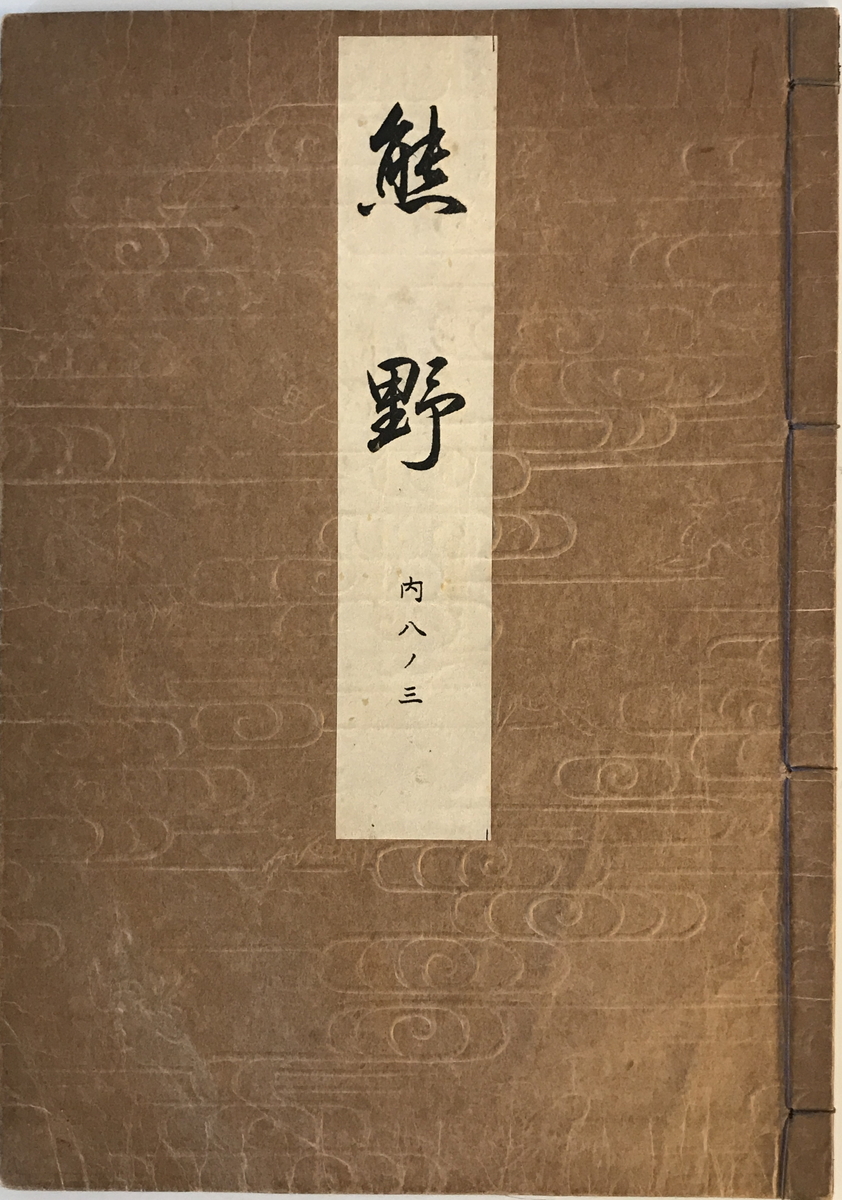 熊野
内八ノ三